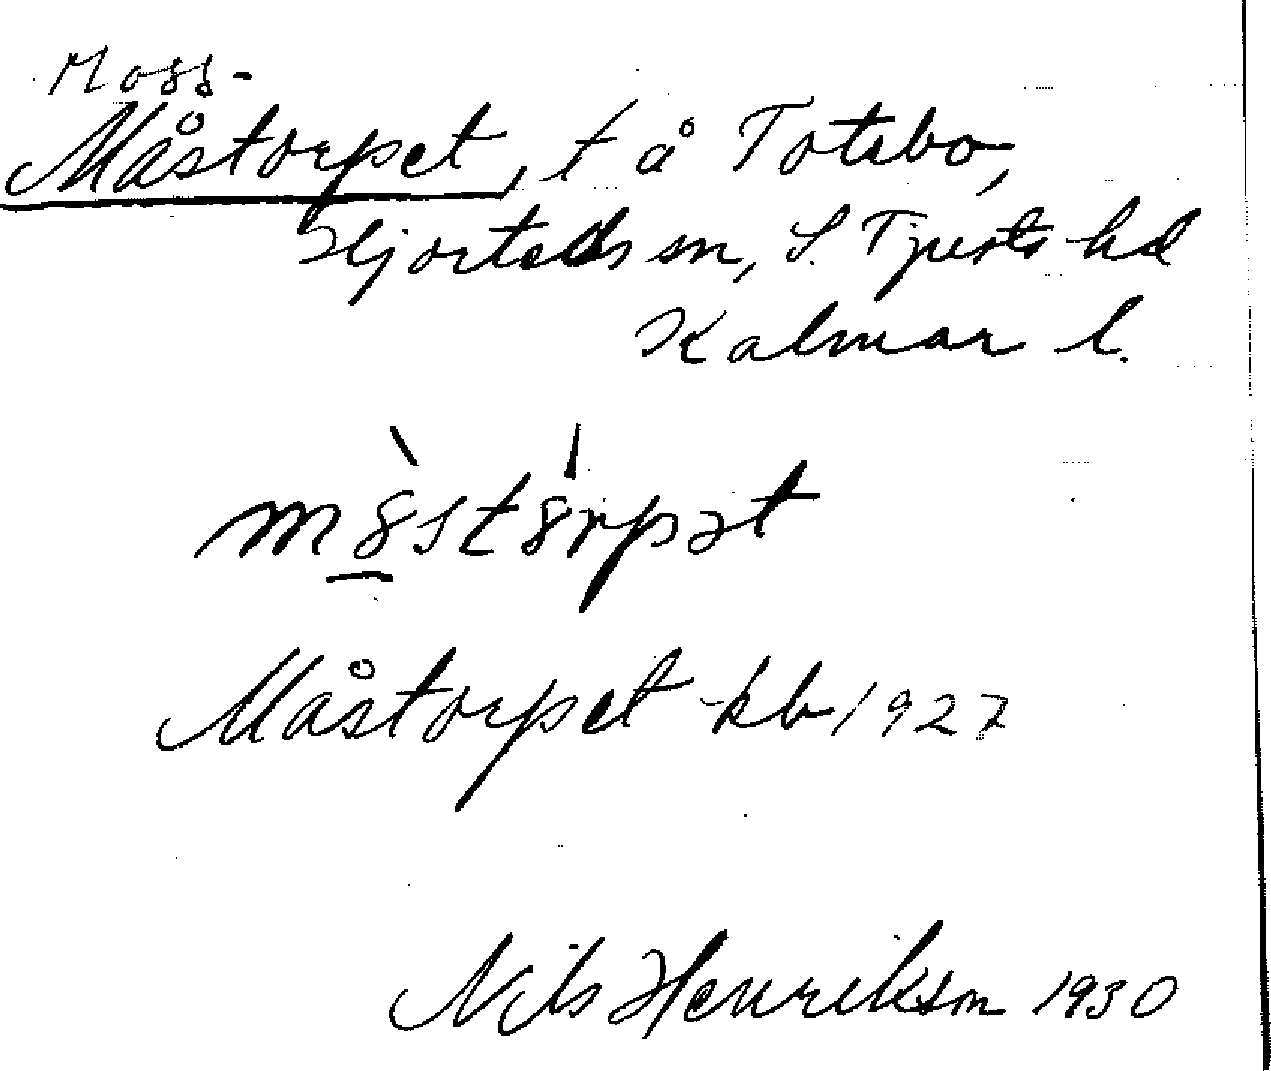 Moss-
Måstorpet, t å Totebo,
Hjorteds sn, S. Tjusts hd
Kalmar l.
m8̲̀st8́rpət
Måstorpet kb 1927
Nils Henrikson 1930